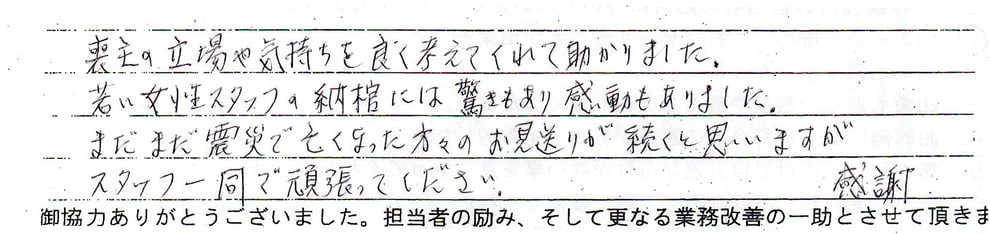 喪主の立場や気持ちを良く考えてくれて助かりました。
若い女性スタッフの納棺には驚きもあり感動もありました。
まだまだ震災で亡くなった方々のお見送りが続くと思いますが
スタッフ一同で頑張ってください。 感謝
御協力ありがとうございました。担当者の励み、そして更なる業務改善の一助とさせて頂きま